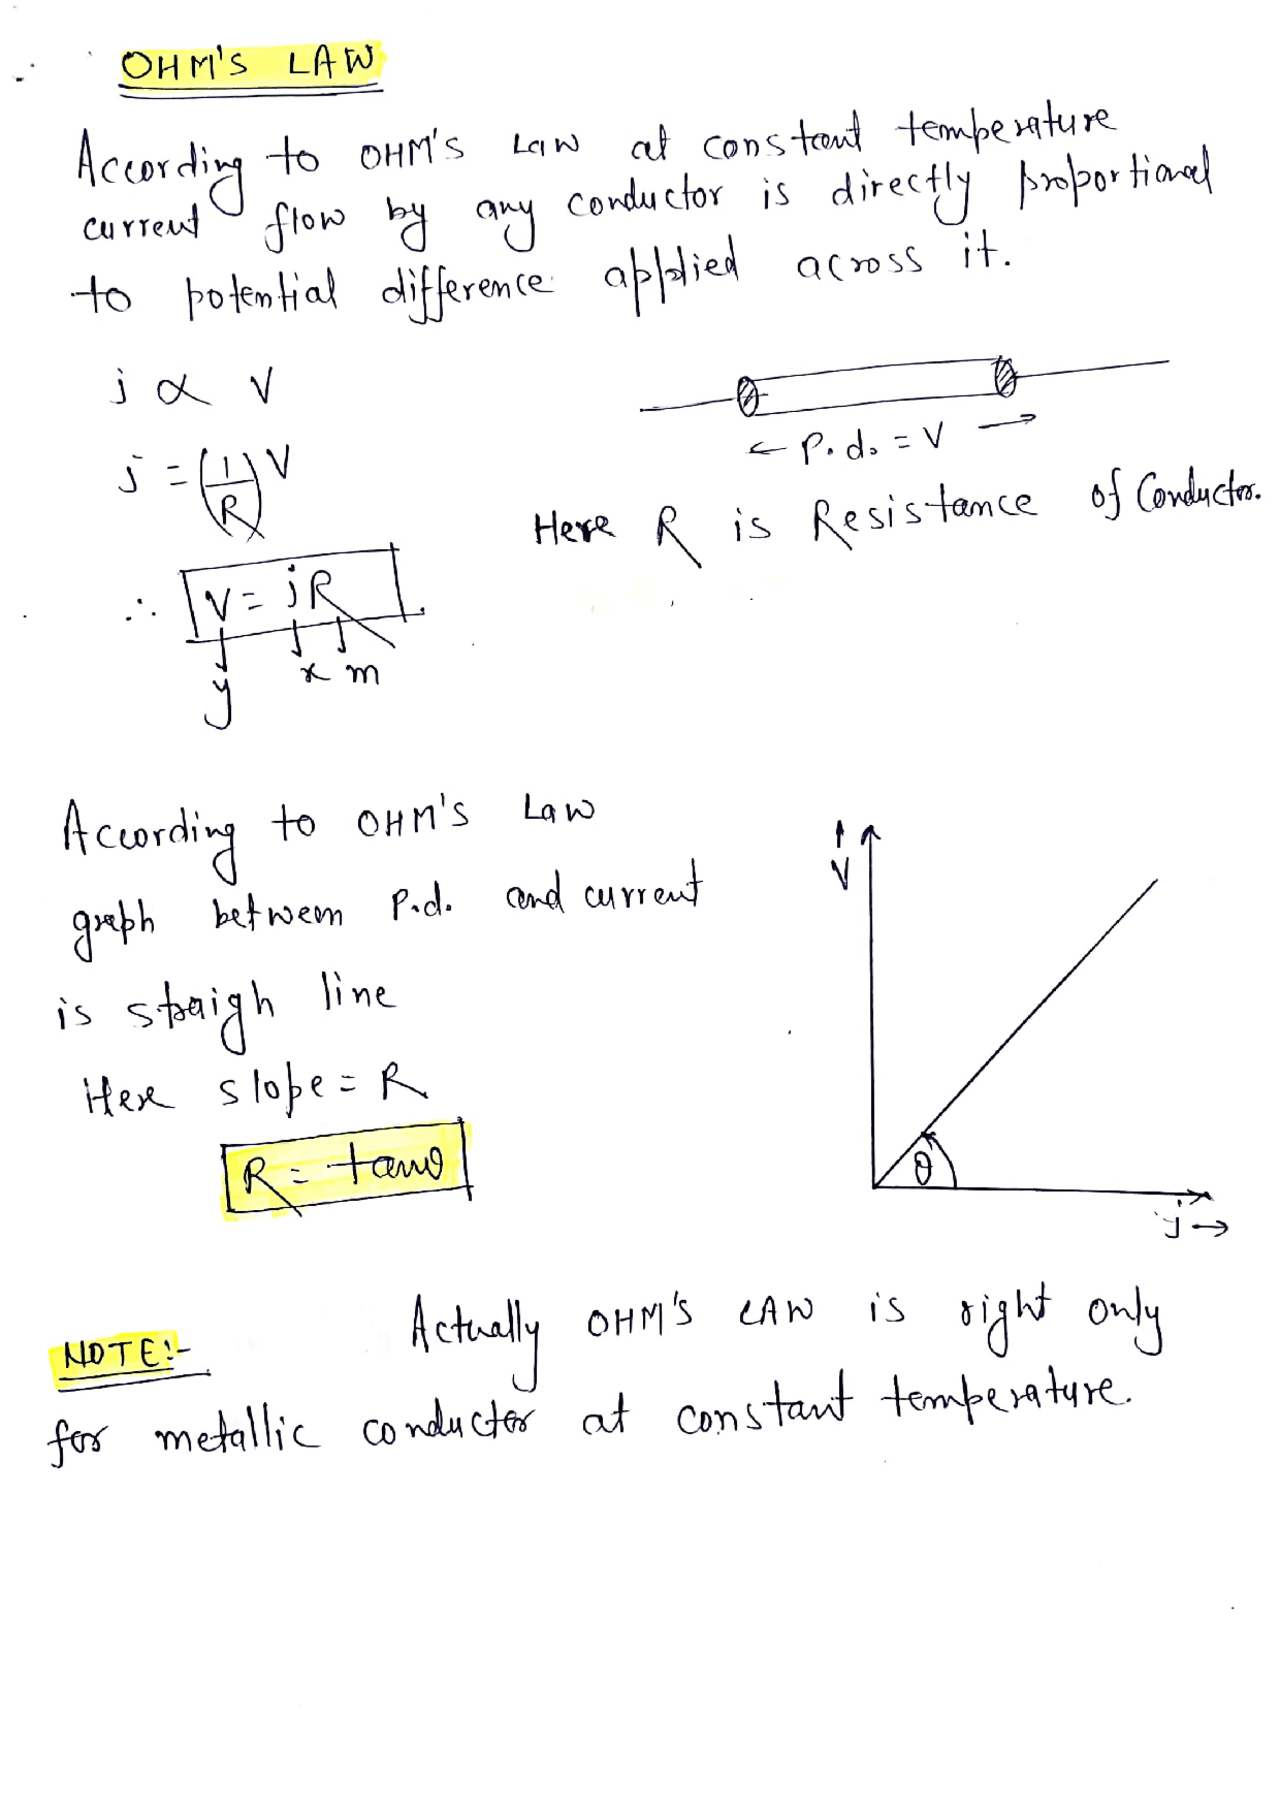 OHM'S LAW
According to OHM'S Law at constant temperature
current flow by any conductor is directly proportional
to potential difference applied across it.
j ∝ V
← P.d. = V →
j = (1/R) V
Here R is Resistance of Conductor.
∴ V = jR
y x m
According to OHM'S Law
graph between P.d. and current
is straigh line
Here slope = R
R = tanθ
V
θ
j →
NOTE:- Actually OHM'S LAW is right only
for metallic conductor at constant temperature.